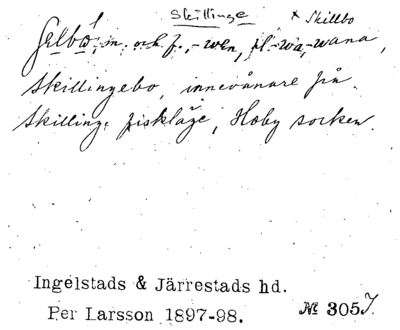 Skillinge × Skillbo
m. och f., -wen, pl -wa, -wana,
Skillingebo, innevånare från
Skillinge fiskläge, Hoby socken.
Ingelstads & Järrestads hd.
Per Larsson 1897-98. № 305